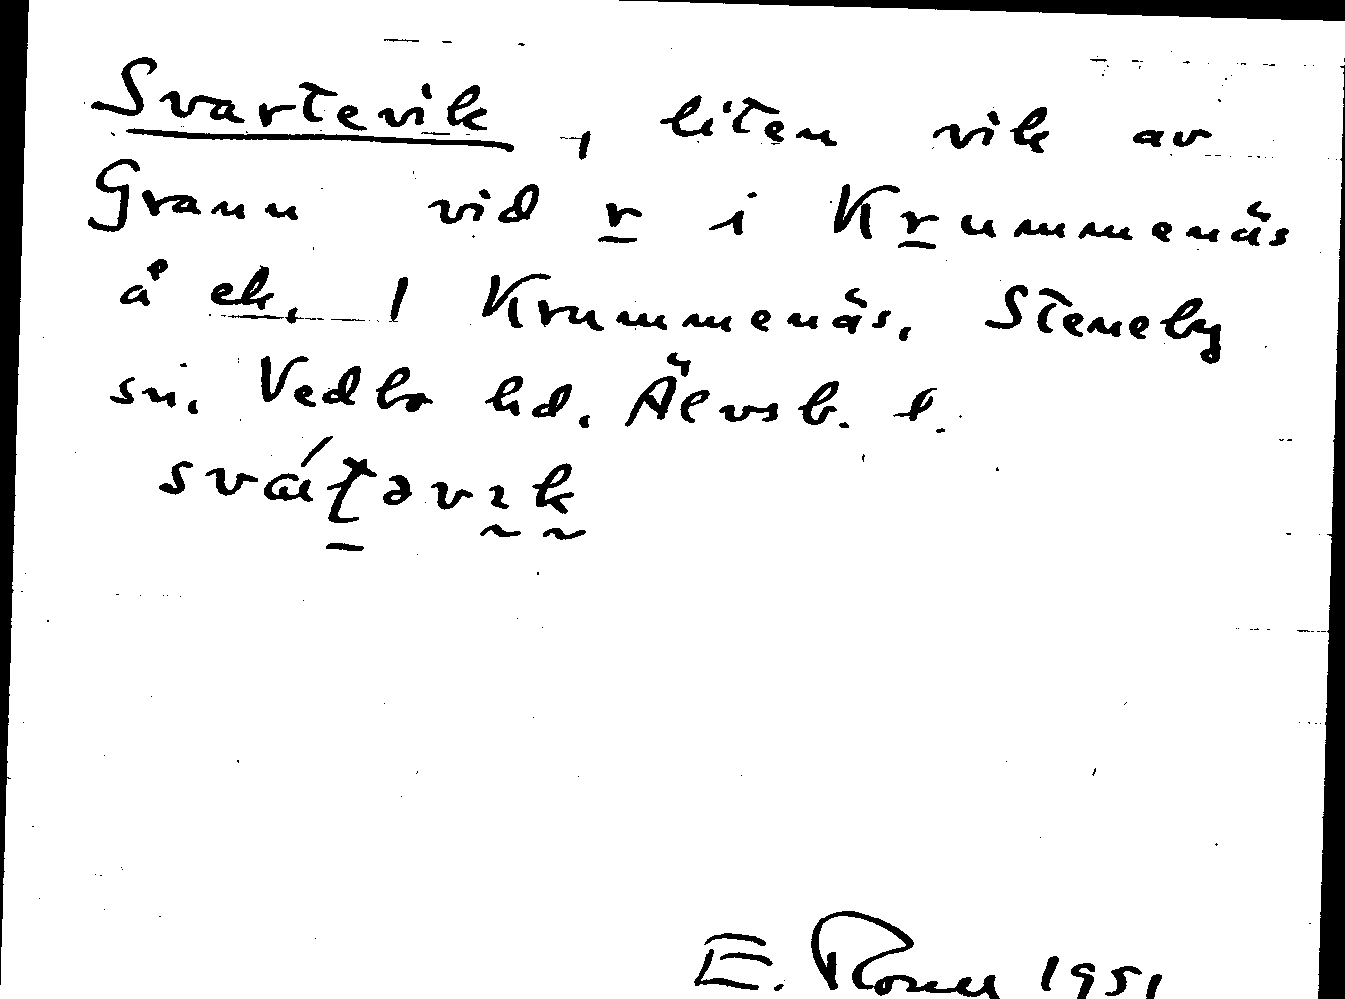 Svartevik, liten vik av
Grann vid r i Krummenäs
å ek. 1 Krummenäs. Steneby
sn. Vedbo hd. Älvsb. l.
E. 1951